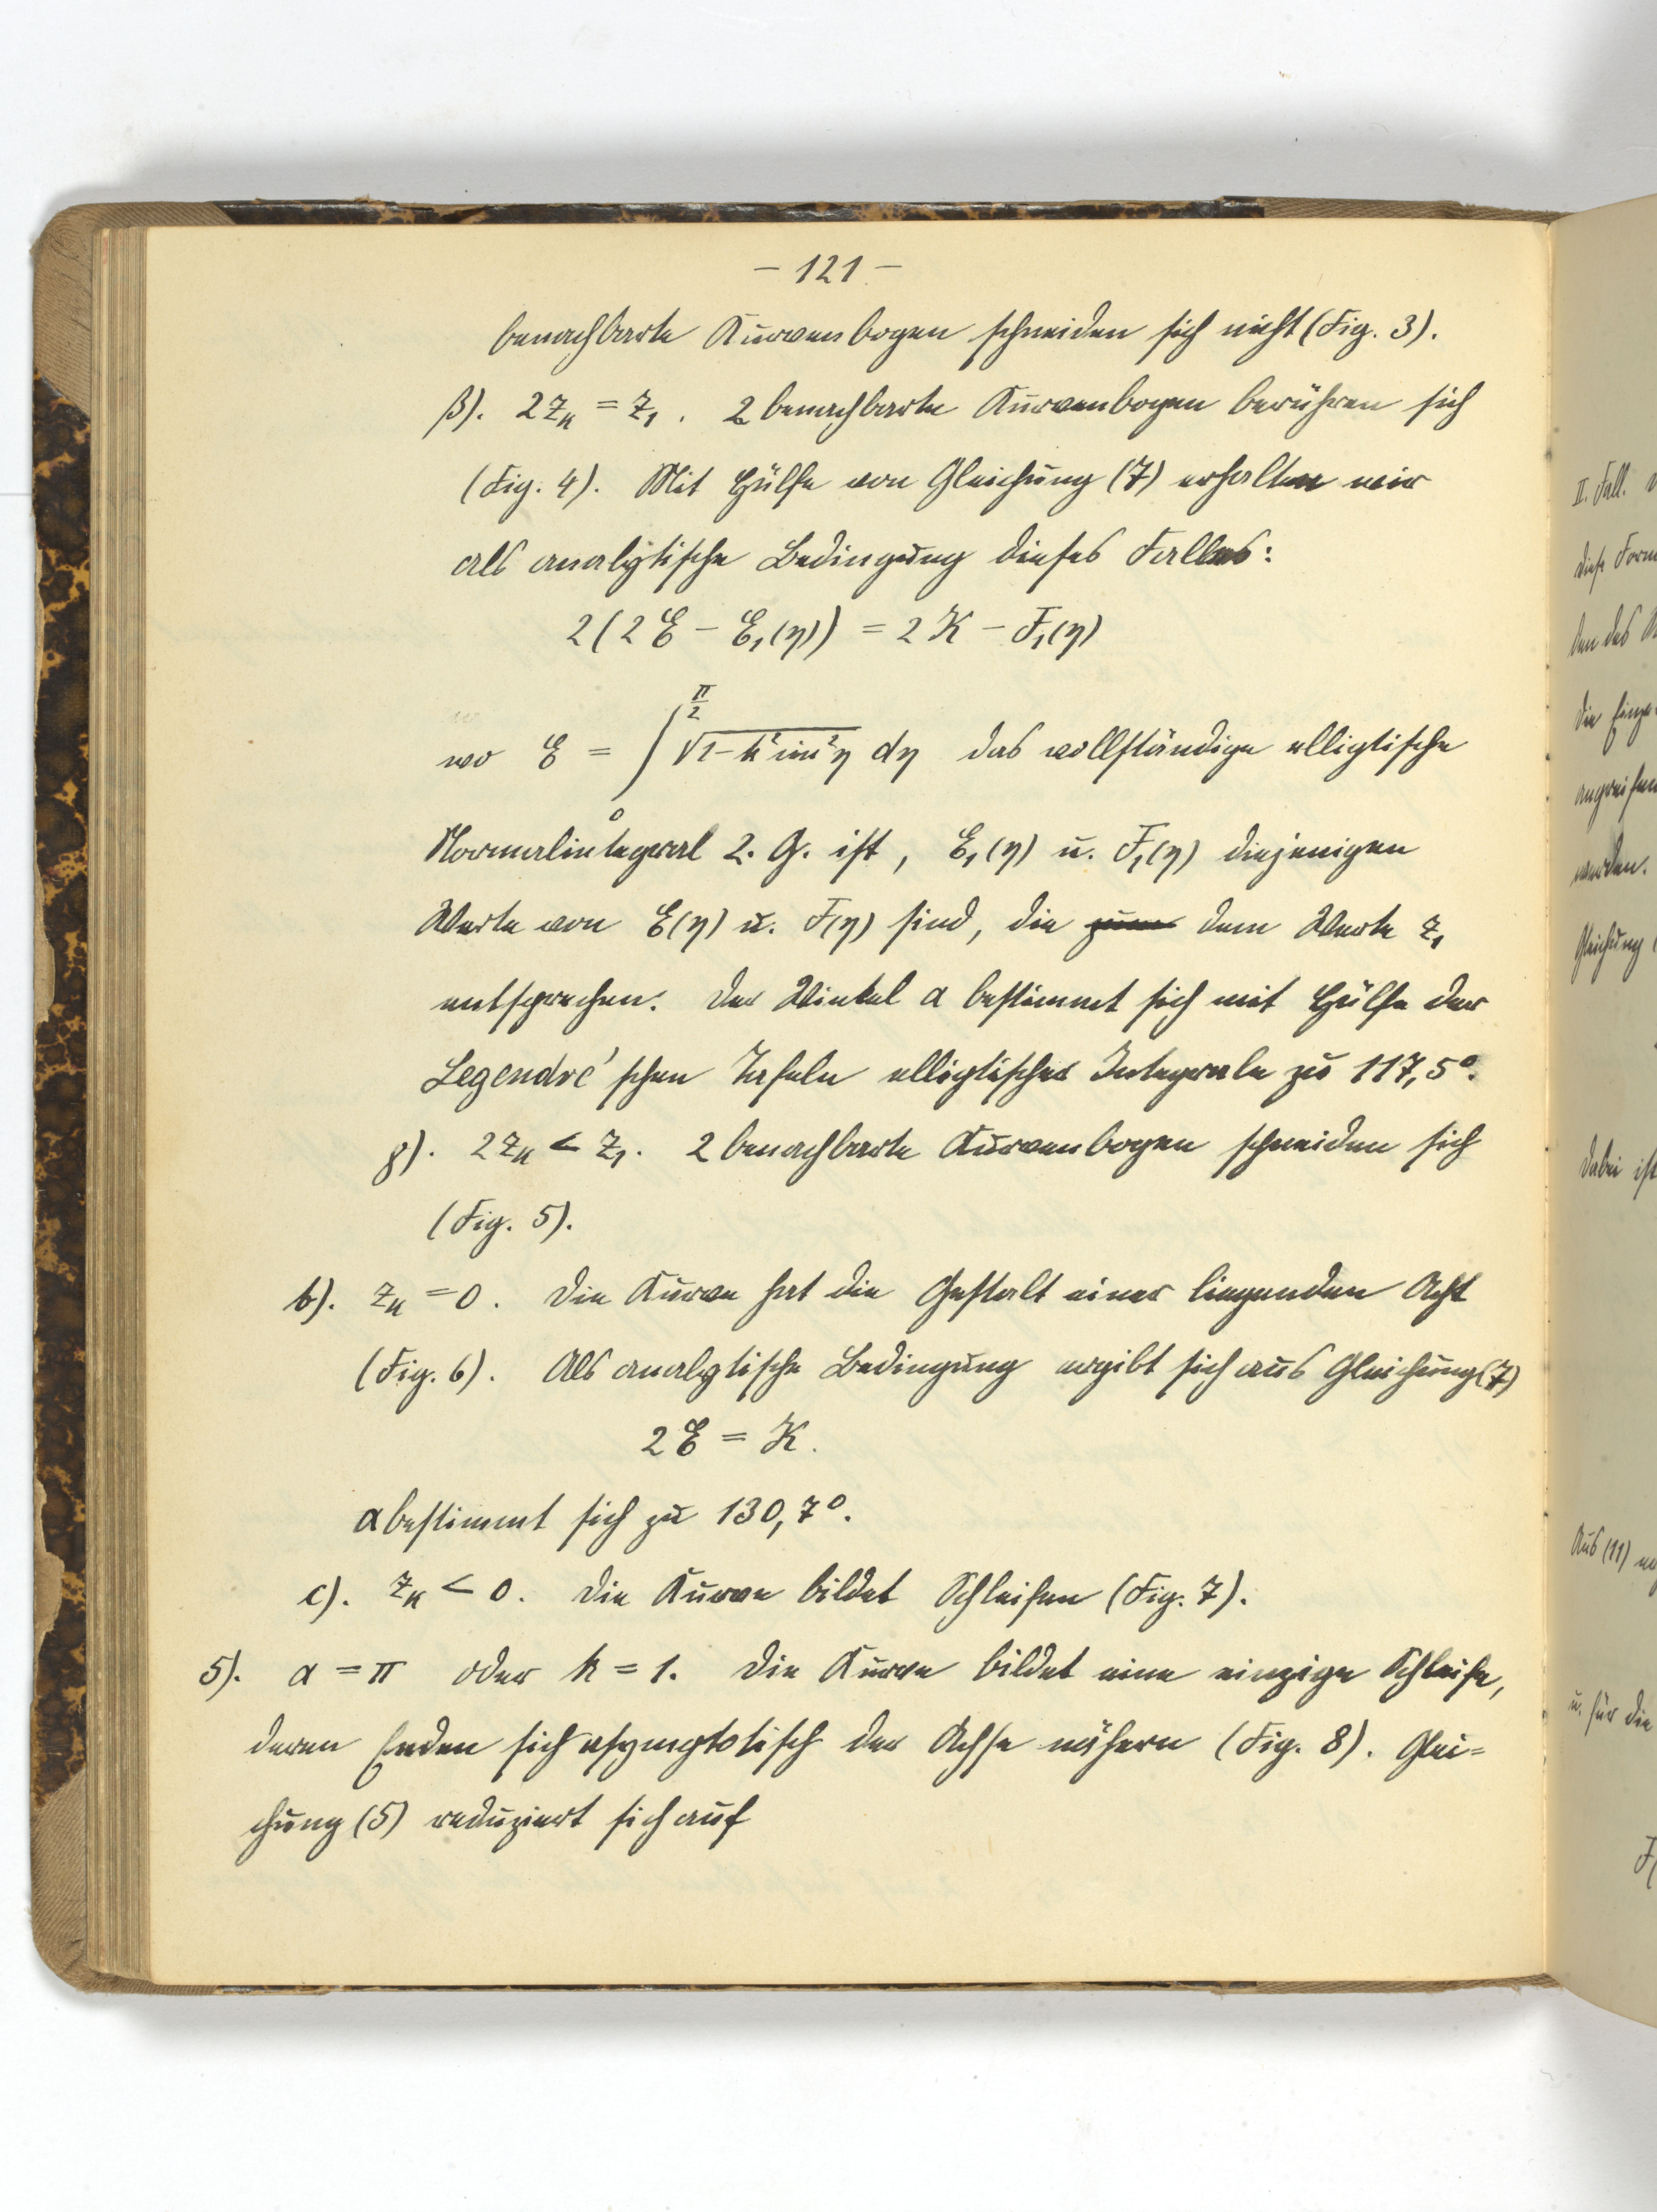 – 121 –
benachbarte Kurvenbogen schneiden sich nicht (Fig. 3).
β). 2 z_k = z_1. 2 benachbarte Kurvenbogen berühren sich
(Fig. 4). Mit Hülfe von Gleichung (7) erhalten wir
als analytische Bedingung dieses Falles:
2(2E − E_1(η)) = 2K − F_1(η)
wo E = ∫_0^{π/2} √1−k² sin²η dη das vollständige elliptische
Normalintegral 2. G. ist, E_1(η) u. F_1(η) diejenigen
Werte von E(η) u. F(η) sind, die zum dem Werte z_1
entsprechen. Der Winkel α bestimmt sich mit Hülfe der
Legendre'schen Tafeln elliptischer Integrale zu 117,5°.
γ). 2 z_k < z_1. 2 benachbarte Kurvenbogen schneiden sich
(Fig. 5).
b). z_k = 0. Die Kurve hat die Gestalt einer liegenden Acht
(Fig. 6). Als analytische Bedingung ergibt sich aus Gleichung (7)
2E = K.
α bestimmt sich zu 130,7°.
c). z_k < 0. Die Kurve bildet Schleifen (Fig. 7).
5). α = π oder k = 1. Die Kurve bildet eine einzige Schleife,
deren Enden sich asymptotisch der Achse nähern (Fig. 8). Glei=
chung (5) reduziert sich auf
II. Fall.
diese
den des
die
werden.
Gleichung
dabei ist
Aus (11)
u. für die